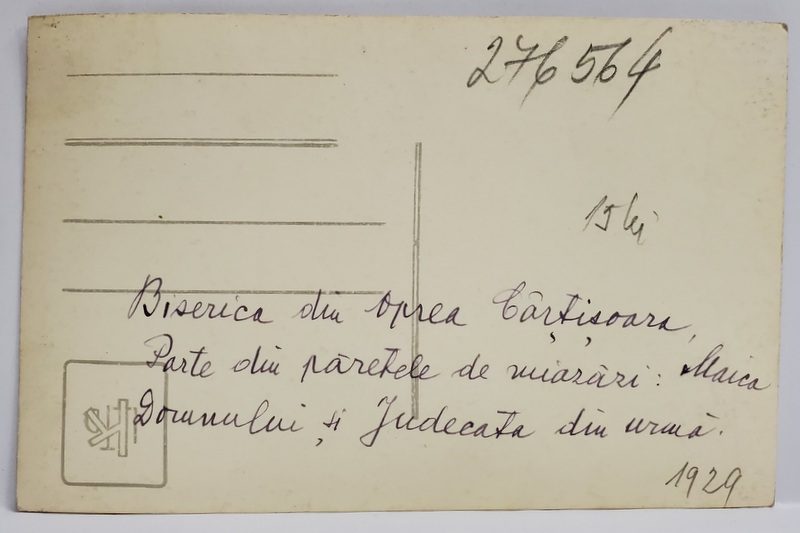 276564
15 lei
Biserica din Oprea Cârțișoara,
Parte din păretele de miazăzi: Maica
Domnului și Judecata din urmă.
1929